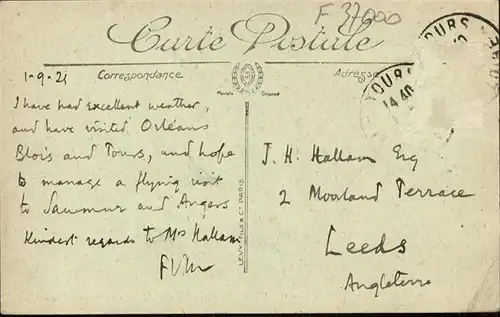 F 37000
Carte Postale
Correspondance
Adresse
TOURS
TOURS
14 40
1-9-21
I have had excellent weather,
and have visited Orléans
Blois and Tours, and hope
to manage a flying visit
to Saumur and Angers
Kindest regards to Mrs Hallam
LEVY FILS & Cie PARIS
J. H. Hallam Esq
2 Moorland Terrace
Leeds
Angleterre